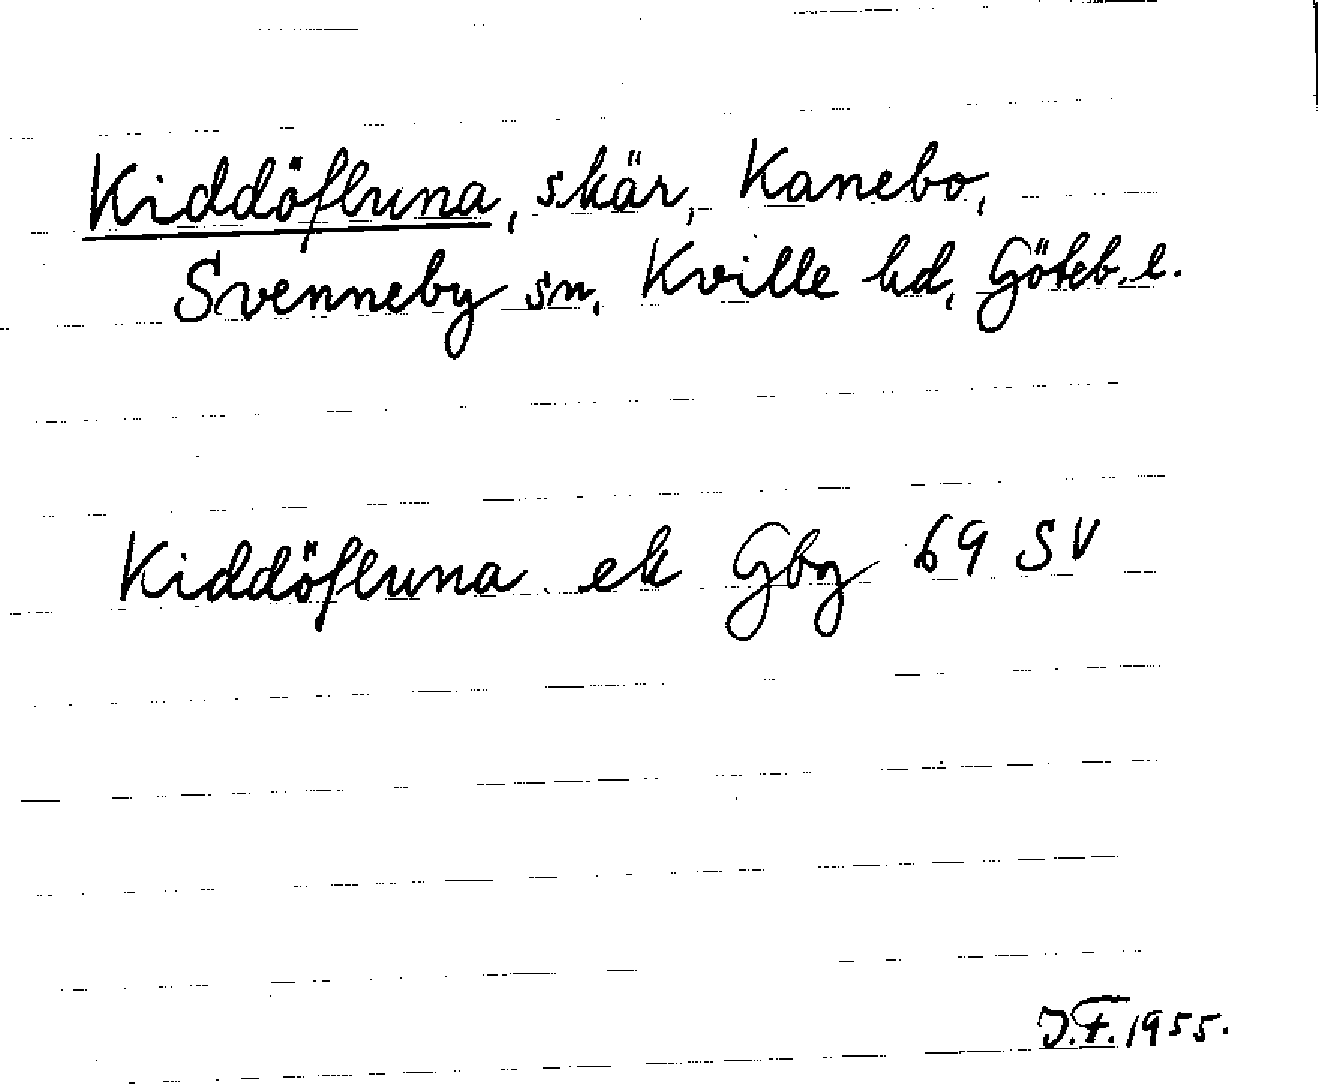 Kiddöfluna, skär, Kanebo,
Svenneby sn, Kville hd, Göteb. l.
Kiddöfluna ek Gbg 69 SV
J.F. 1955.